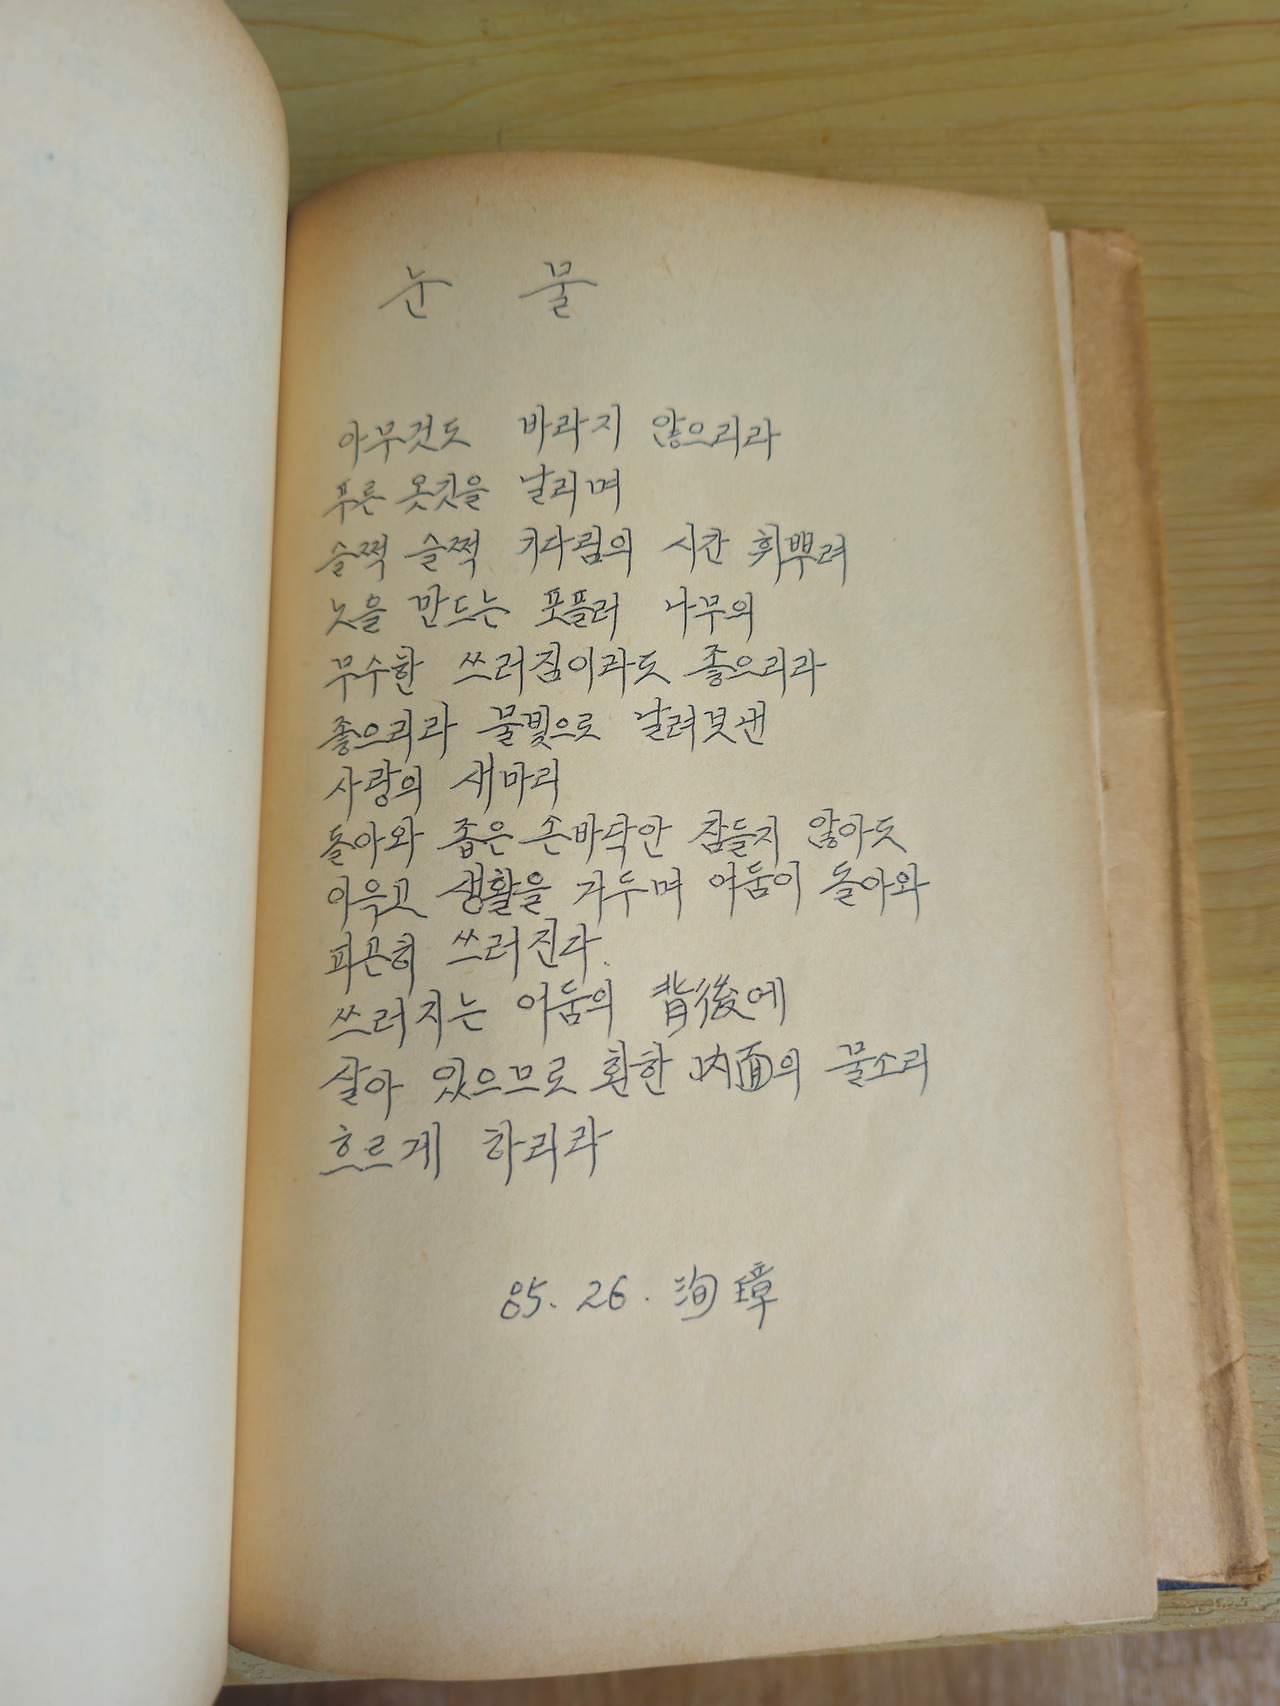 눈 물
아무것도 바라지 않으리라
푸른 옷깃을 날리며
슬쩍 슬쩍 키다림의 시간 휘뿌려
노을 만드는 포플러 나무의
무수한 쓰러짐이라도 좋으리라
좋으리라 물빛으로 날려보낸
사랑의 새마리
돌아와 좁은 손바닥안 잠들지 않아도
이윽고 생활을 거두며 어둠이 돌아와
피곤히 쓰러진다.
쓰러지는 어둠의 背後에
살아 있으므로 환한 内面의 물소리
흐르게 하리라
85. 26. 洵璋